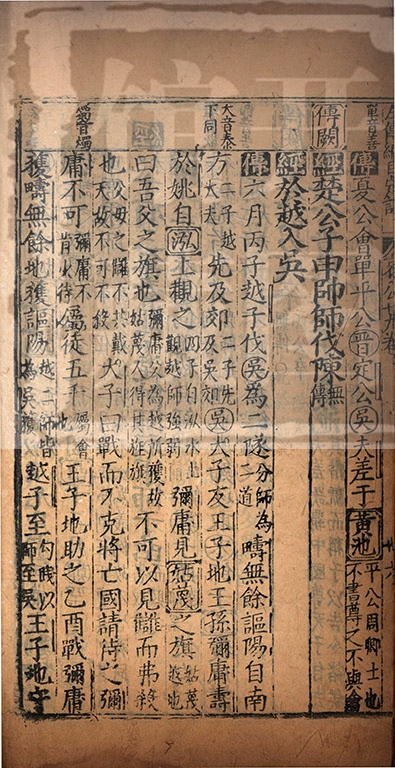 單音善
傳夏公會單平公晉定公吳夫差于黃池平公周卿士也不書尊之不與會
傳闕
經楚公子申帥師伐陳無傳
經於越入吳
傳六月丙子越子伐吳為二隧分師為二道疇無餘謳陽自南
大音泰下同
方二子越大夫先及郊二子先及吳郊吳大子友王子地王孫彌庸壽
於姚自泓上觀之四子自泓水上觀越師強弱彌庸見姑蔑之旗姑蔑越地
曰吾父之旗也彌庸父為越所獲故姑蔑人得其旌旗不可以見讎而弗殺
也父母之讎不共戴天故不可不殺大子曰戰而不克將亡國請待之彌
庸不可彌庸不肯水待屬徒五千屬會也王子地助之乙酉戰彌庸
獲疇無餘地獲謳陽越二師皆為吳獲越子至勾踐以師至吳王子地守